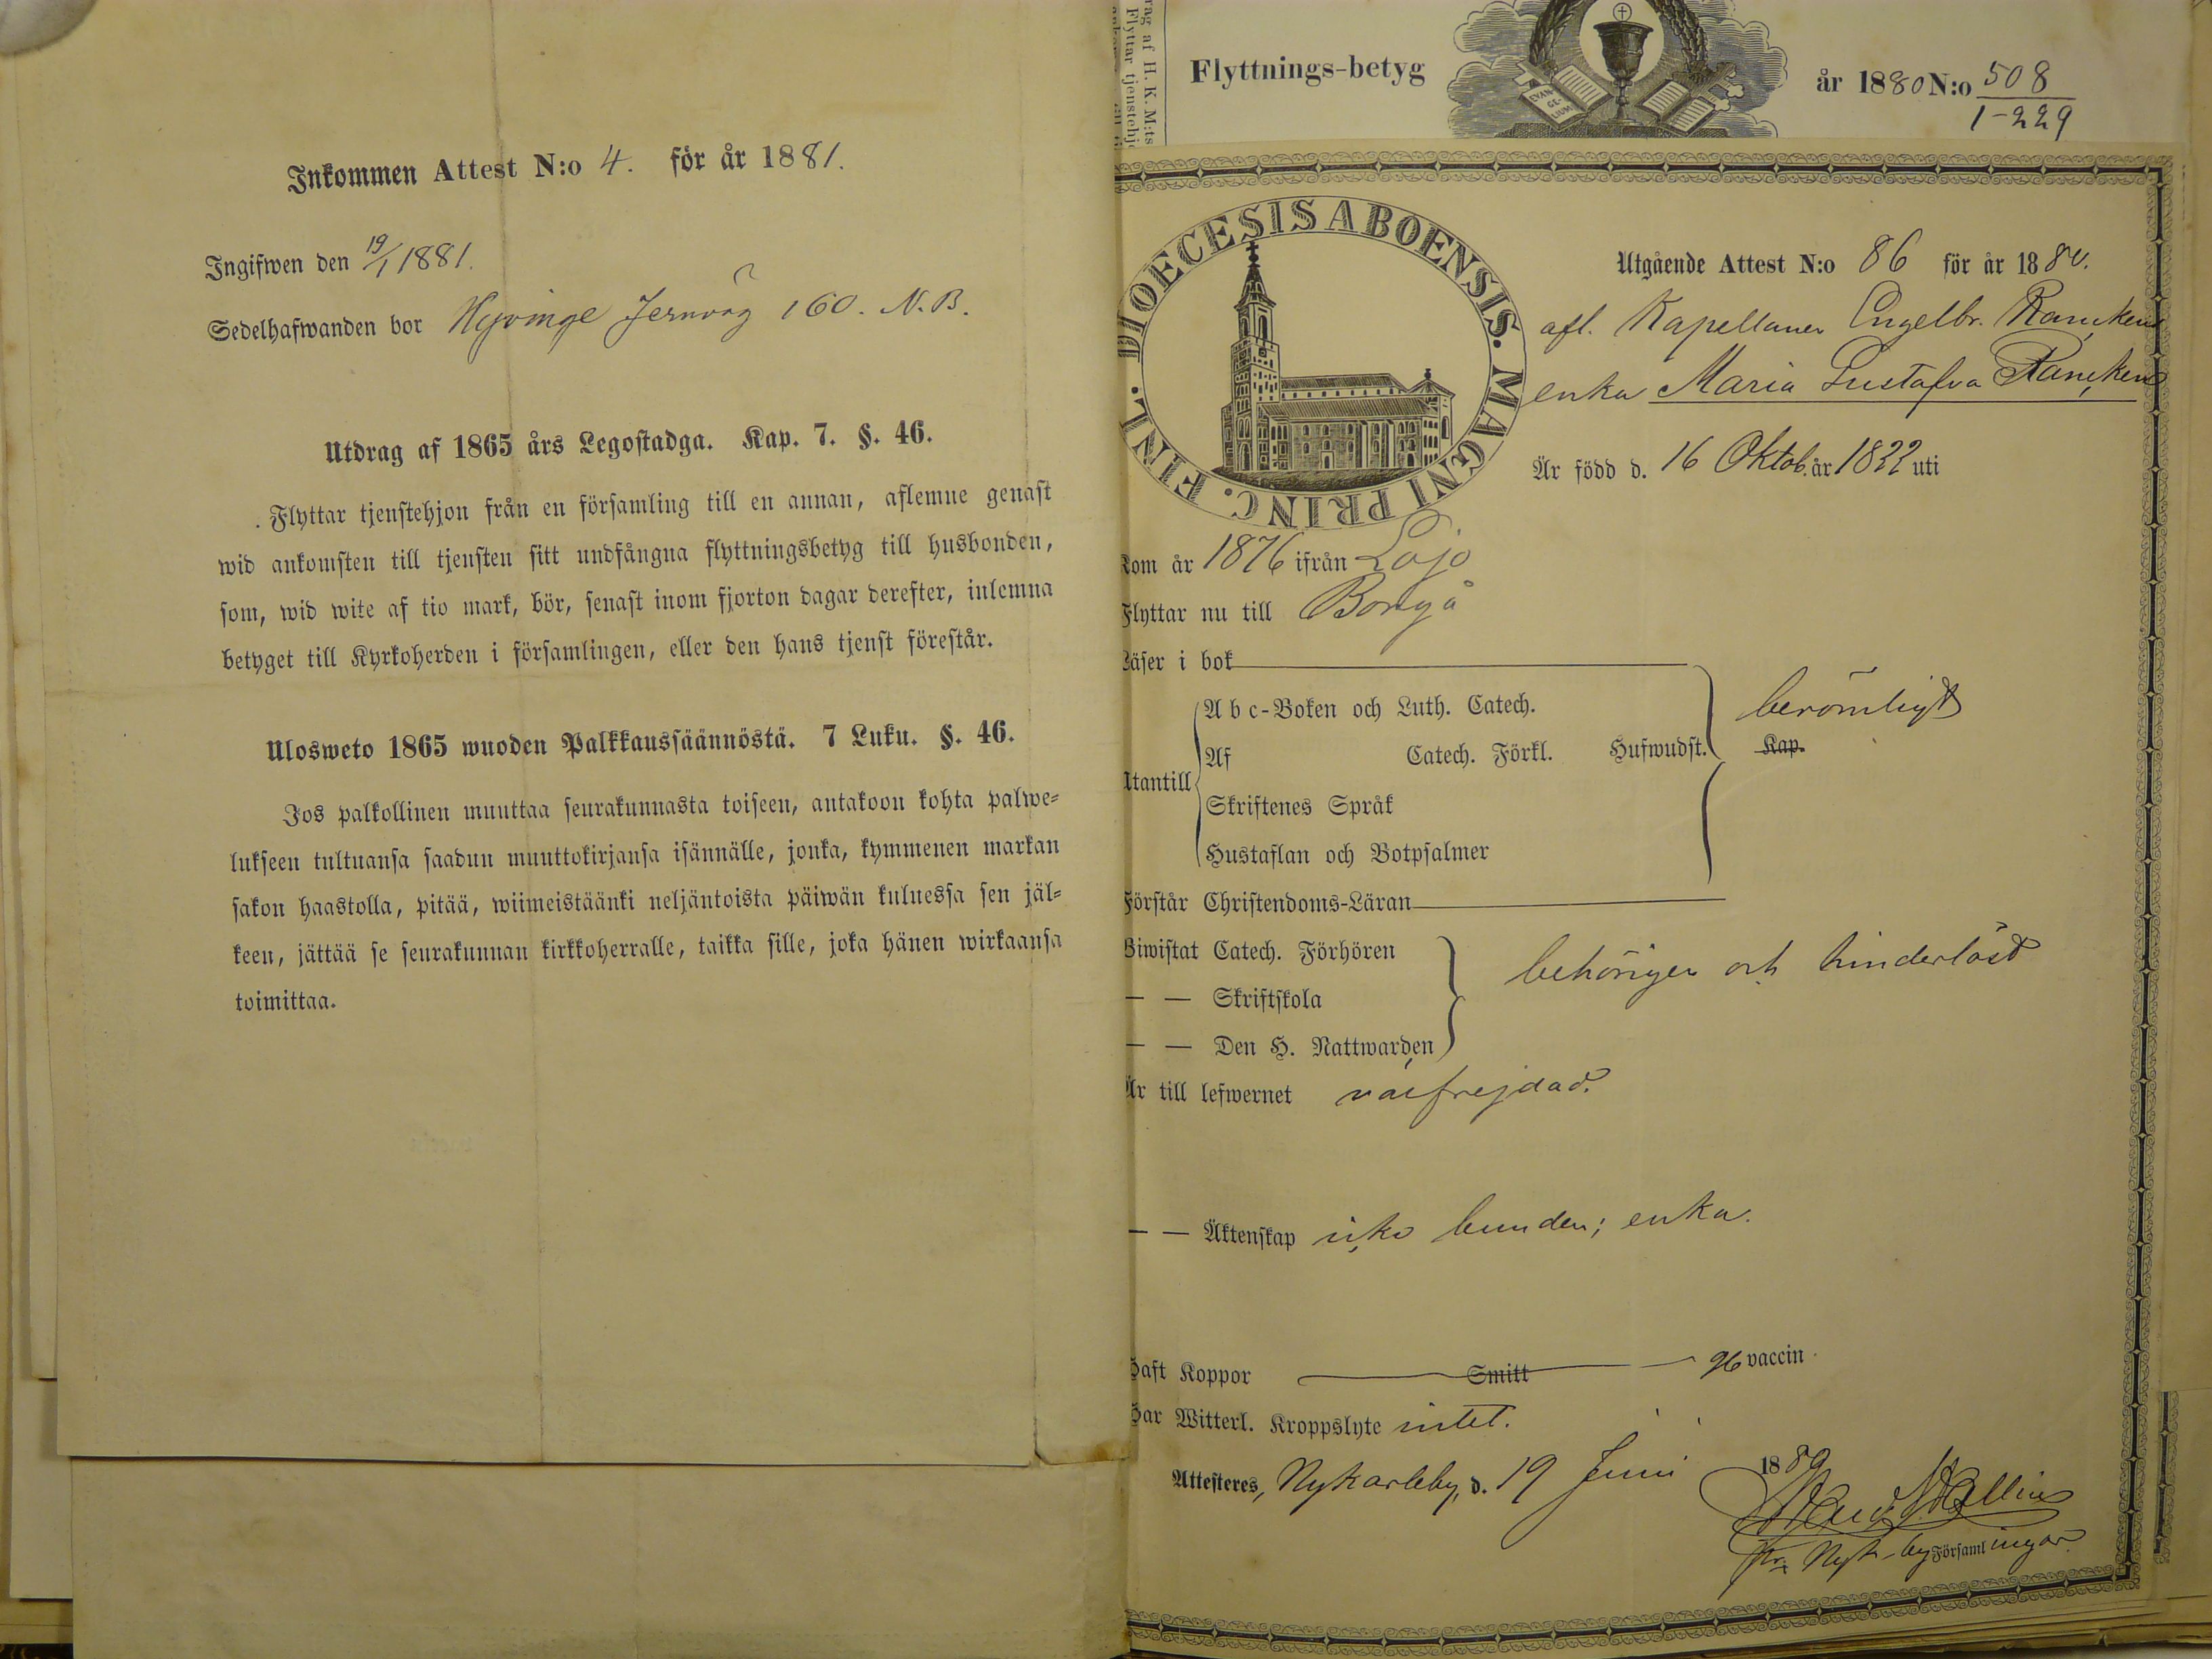 Inkommen Attest N:o 4. för år 1881.
Ingifwen den 19/1 1881.
Sedelhafwanden bor Hyvinge Jernväg 160. N.B.
Utdrag af 1865 års Legostadga. Kap. 7. §. 46.
Flyttar tjenstehjon från en församling till en annan, aflemne genast
wid ankomsten till tjensten sitt undfångna flyttningsbetyg till husbonden,
som, wid wite af tio mark, bör, senast inom fjorton dagar derefter, inlemna
betyget till Kyrkoherden i församlingen, eller den hans tjenst förestår.
Ulosweto 1865 wuoden Palkkaussäännöstä. 7 Luku. §. 46.
Jos palkollinen muuttaa seurakunnasta toiseen, antakoon kohta palwe=
lukseen tultuansa saadun muuttokirjansa isännälle, jonka, kymmenen markan
sakon haastolla, pitää, wiimeistäänki neljäntoista päiwän kuluessa sen jäl=
keen, jättää se seurakunnan kirkkoherralle, taikka sille, joka hänen wirkaansa
toimittaa.
rag af H. K. M:ts
Flyttar tjenstehj
Flyttnings-betyg
EVAN-
GE-
LIUM
år 1880 N:o 508
1-229
DIOECESIS ABOENSIS. MAGNI PRINC. FINL.
Utgående Attest N:o 86 för år 1880.
afl. Kapellanen Engelbr. Ranckens
enka Maria Gustafva Rancken
Är född d. 16 Oktob. år 1822 uti
Kom år 1876 ifrån Lojo
Flyttar nu till Borgå
Läser i bok
Abc-Boken och Luth. Catech.
berömligt
Utantill
Af Catech. Förkl. Hufwudst. Kap.
Skriftenes Språk
Hustaflan och Botpsalmer
Förstår Christendoms-Läran
Biwistat Catech. Förhören
behörigen och hinderlöst
— — Skriftskola
— — Den H. Nattwarden
Är till lefwernet välfrejdad.
— — Äktenskap icke bunden; enka.
Haft Koppor Smitt vaccin
Har Witterl. Kroppslyte intet.
Attesteres, Nykarleby, d. 19 Juni 1880
Församlingar